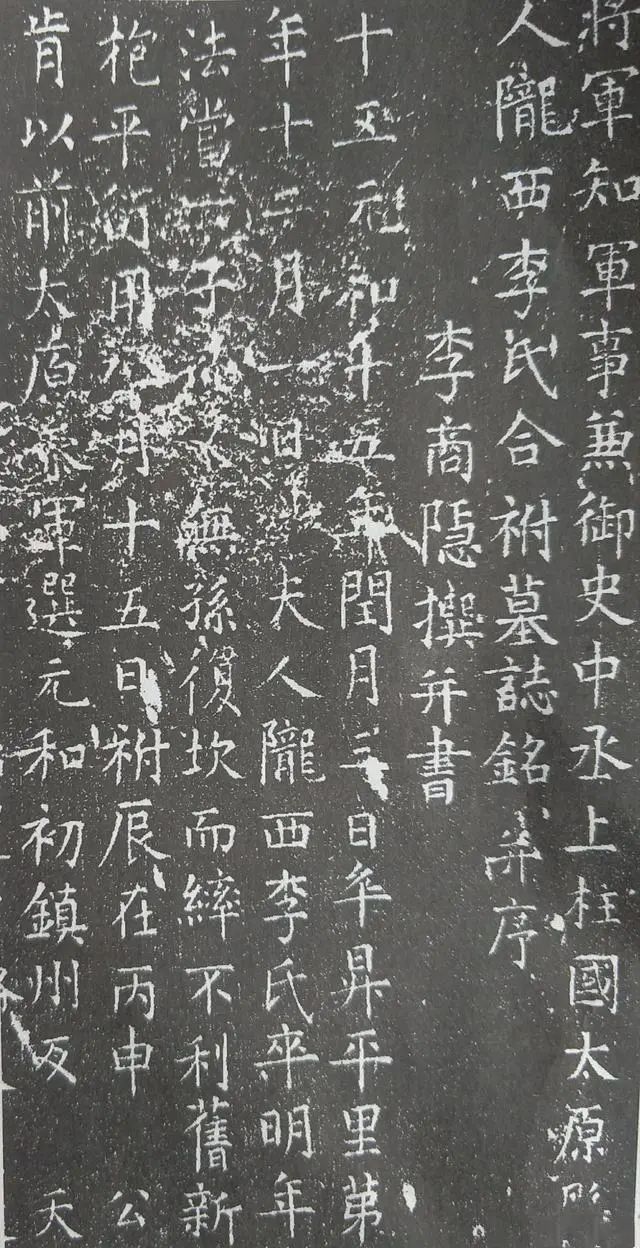 將軍知軍事兼御史中丞上柱國太原
人隴西李氏合祔墓誌銘并序
李商隱撰并書
十五元和年五年閏月三日卒昇平里第
年十二月一日夫人隴西李氏卒明年
法當子無孫復坎而縡不利舊新
枹平衡用月十五日祔辰在丙申 公
肯以前太原參軍選元和初鎮州反 天